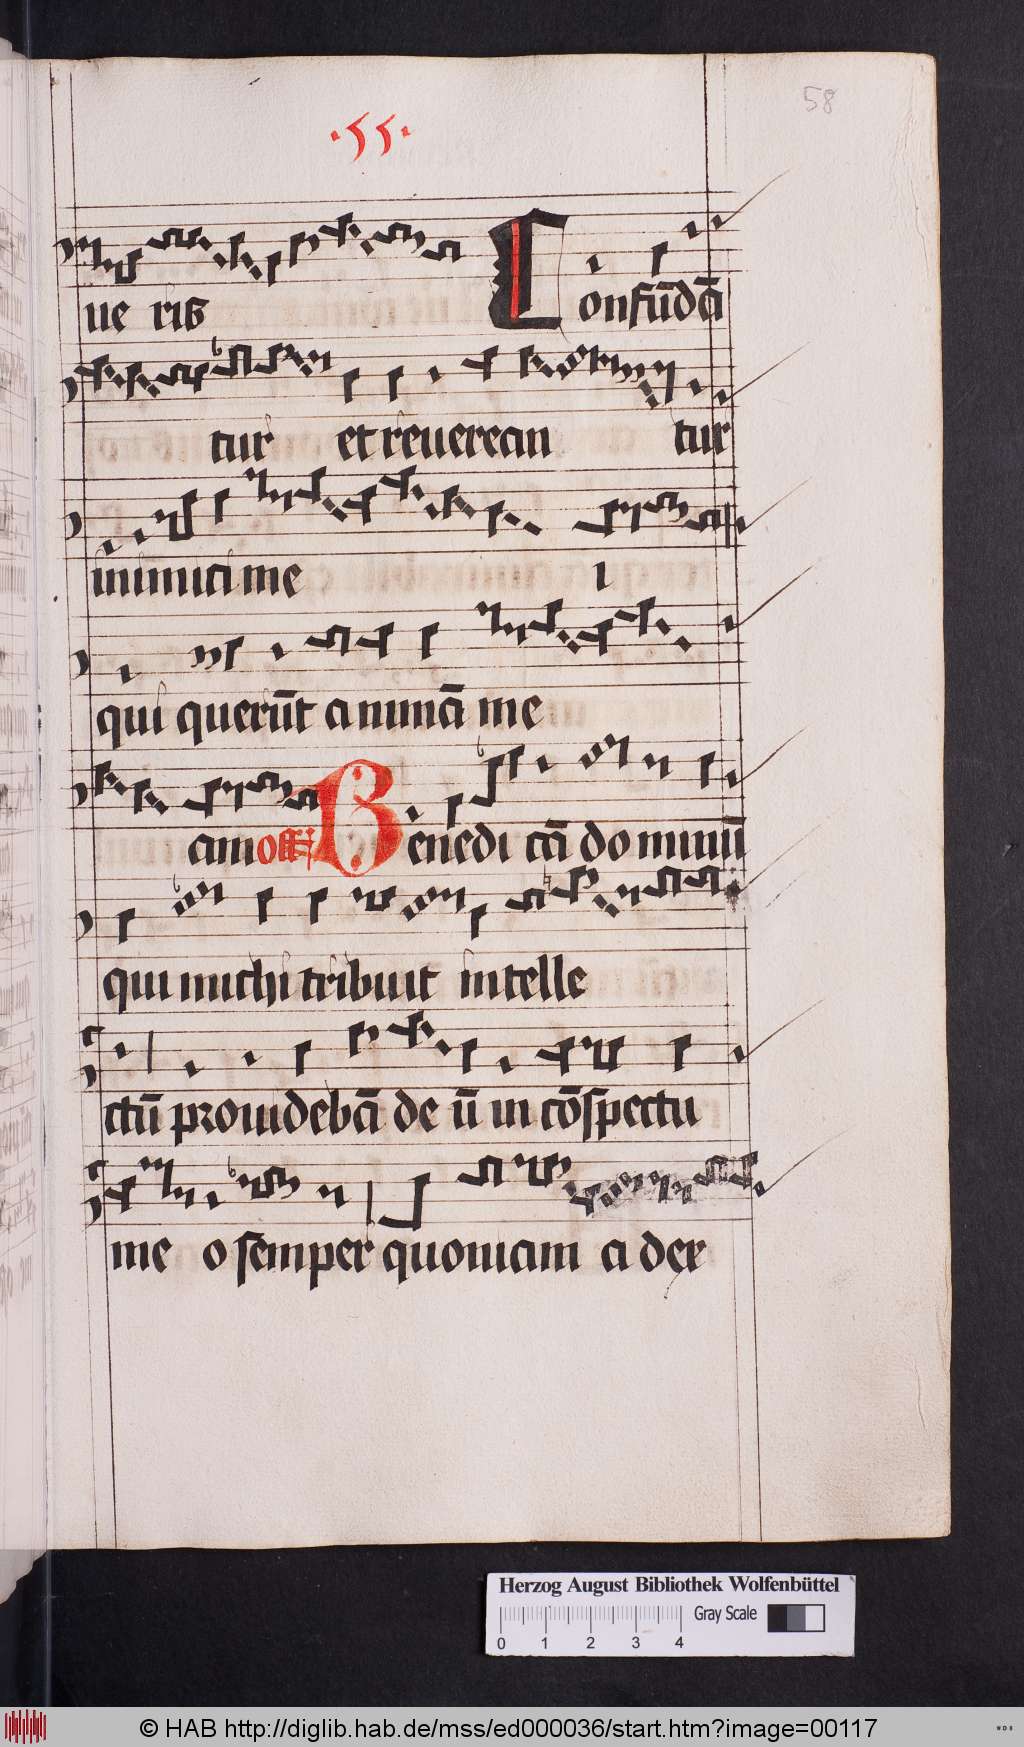 58
·55·
ue ris Confūdā
tur et reuerean tur
inimici me i
qui querūt animā me
am off Benedi cā do minū
qui michi tribuit intelle
ctū prouidebā de ū in cōspectu
me o semper quoniam a dex
Herzog August Bibliothek Wolfenbüttel
Gray Scale
0 1 2 3 4
© HAB http://diglib.hab.de/mss/ed000036/start.htm?image=00117